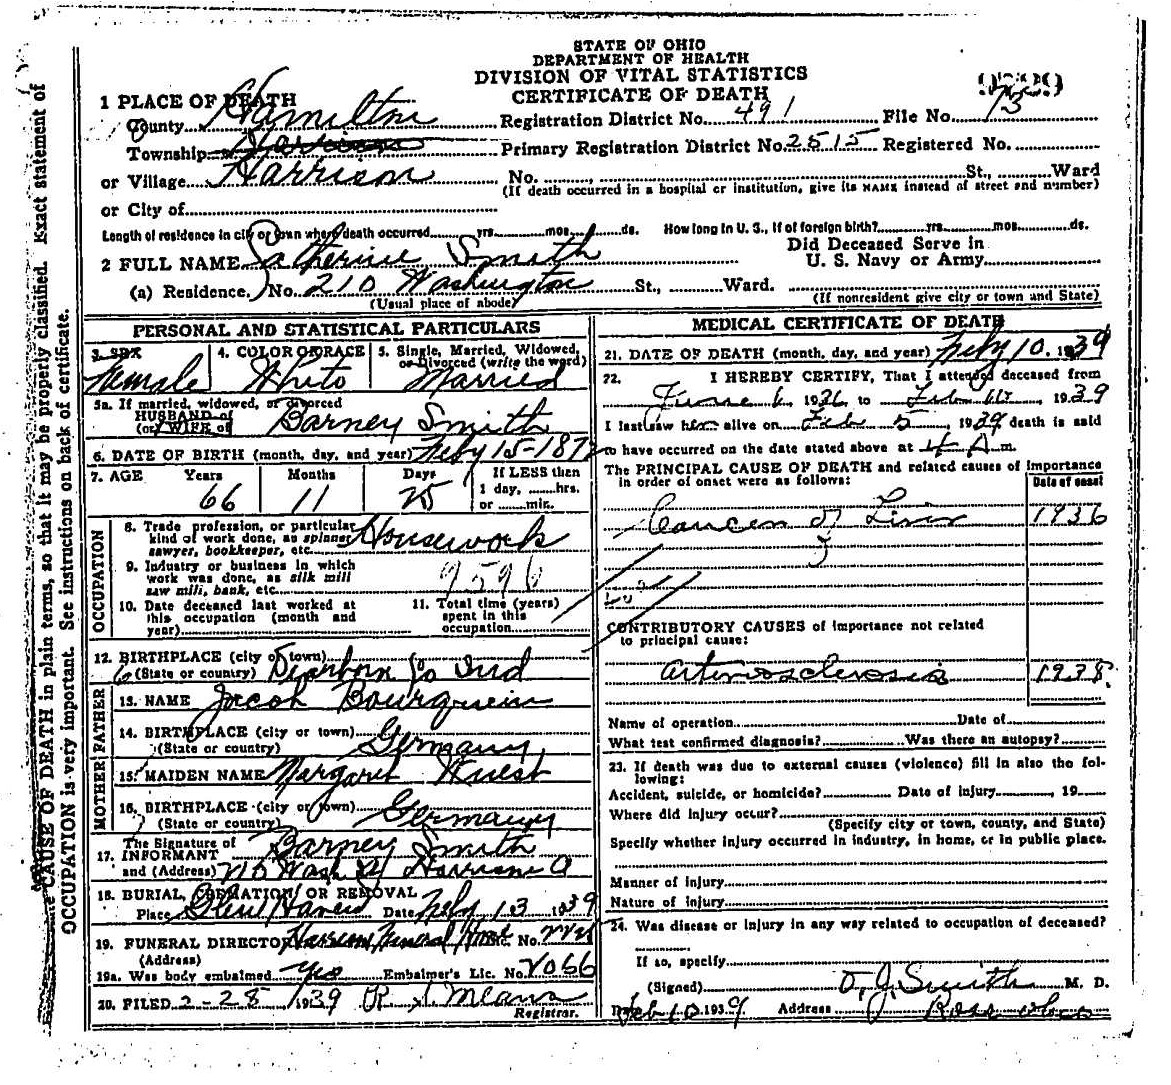 STATE OF OHIO
DEPARTMENT OF HEALTH
DIVISION OF VITAL STATISTICS
CERTIFICATE OF DEATH
1 PLACE OF DEATH
County Hamilton Registration District No. 491 File No. 13
Township Harrison Primary Registration District No. 2515 Registered No.
or Village Harrison No. St., Ward
(If death occurred in a hospital or institution, give its NAME instead of street and number)
or City of
Length of residence in city or town where death occurred yrs. mos. ds. How long in U. S., if of foreign birth? yrs. mos. ds.
2 FULL NAME Catherine Smith Did Deceased Serve in U. S. Navy or Army
(a) Residence. No. 210 Washington St., Ward.
(Usual place of abode) (If nonresident give city or town and State)
PERSONAL AND STATISTICAL PARTICULARS
3. SEX Female 4. COLOR OR RACE White 5. Single, Married, Widowed, or Divorced (write the word) Married
5a. If married, widowed, or divorced
HUSBAND of
(or) WIFE of Barney Smith
6. DATE OF BIRTH (month, day, and year) Feby 15-187
7. AGE Years 66 Months 11 Days 25 If LESS then 1 day, hrs. or min.
OCCUPATION
8. Trade profession, or particular
kind of work done, as spinner
sawyer, bookkeeper, etc. Housework
9. Industry or business in which
work was done, as silk mill
saw mill, bank, etc. 9596
10. Date deceased last worked at
this occupation (month and
year)
11. Total time (years)
spent in this
occupation
12. BIRTHPLACE (city or town)
(State or country) Dearborn Co Ind
FATHER
13. NAME Jacob Bourquein
14. BIRTHPLACE (city or town)
(State or country) Germany
MOTHER
15. MAIDEN NAME Margaret Wuest
16. BIRTHPLACE (city or town)
(State or country) Germany
17. The Signature of
INFORMANT Barney Smith
and (Address) 210 Wash St Harrison O
18. BURIAL, CREMATION OR REMOVAL
Place Glen Haven Date Feby 13 1939
19. FUNERAL DIRECTOR Harrison Funeral Home Lic. No.
(Address)
19a. Was body embalmed Yes Embalmer's Lic. No.
20. FILED 2-28 1939 Means
Registrar.
MEDICAL CERTIFICATE OF DEATH
21. DATE OF DEATH (month, day, and year) Feby 10. 1939
22. I HEREBY CERTIFY, That I attended deceased from
June 1936 to Feb 10 1939
I last saw her alive on Feb 5 1939 death is said
to have occurred on the date stated above at 4 A m.
The PRINCIPAL CAUSE OF DEATH and related causes of importance
in order of onset were as follows: Date of onset
Cancer of Liver 1936
CONTRIBUTORY CAUSES of importance not related
to principal cause:
arteriosclerosis 1938
Name of operation Date of
What test confirmed diagnosis? Was there an autopsy?
23. If death was due to external causes (violence) fill in also the following:
Accident, suicide, or homicide? Date of injury , 19
Where did injury occur?
(Specify city or town, county, and State)
Specify whether injury occurred in industry, in home, or in public place.
Manner of injury
Nature of injury
24. Was disease or injury in any way related to occupation of deceased?
If so, specify
(Signed) O. J. Smith M. D.
Feb 10 1939 Address
CAUSE OF DEATH in plain terms, so that it may be properly classified. Exact statement of
OCCUPATION is very important. See instructions on back of certificate.